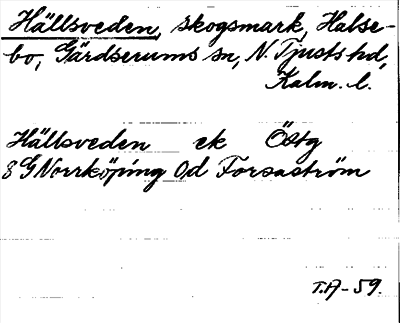 Hällsveden, skogsmark, Halse-
bo, Gärdserums sn, N. Tjusts hd,
Kalm. l.
Hällsveden ek Östg
8 G Norrköping Od Forsaström
T.A-59.